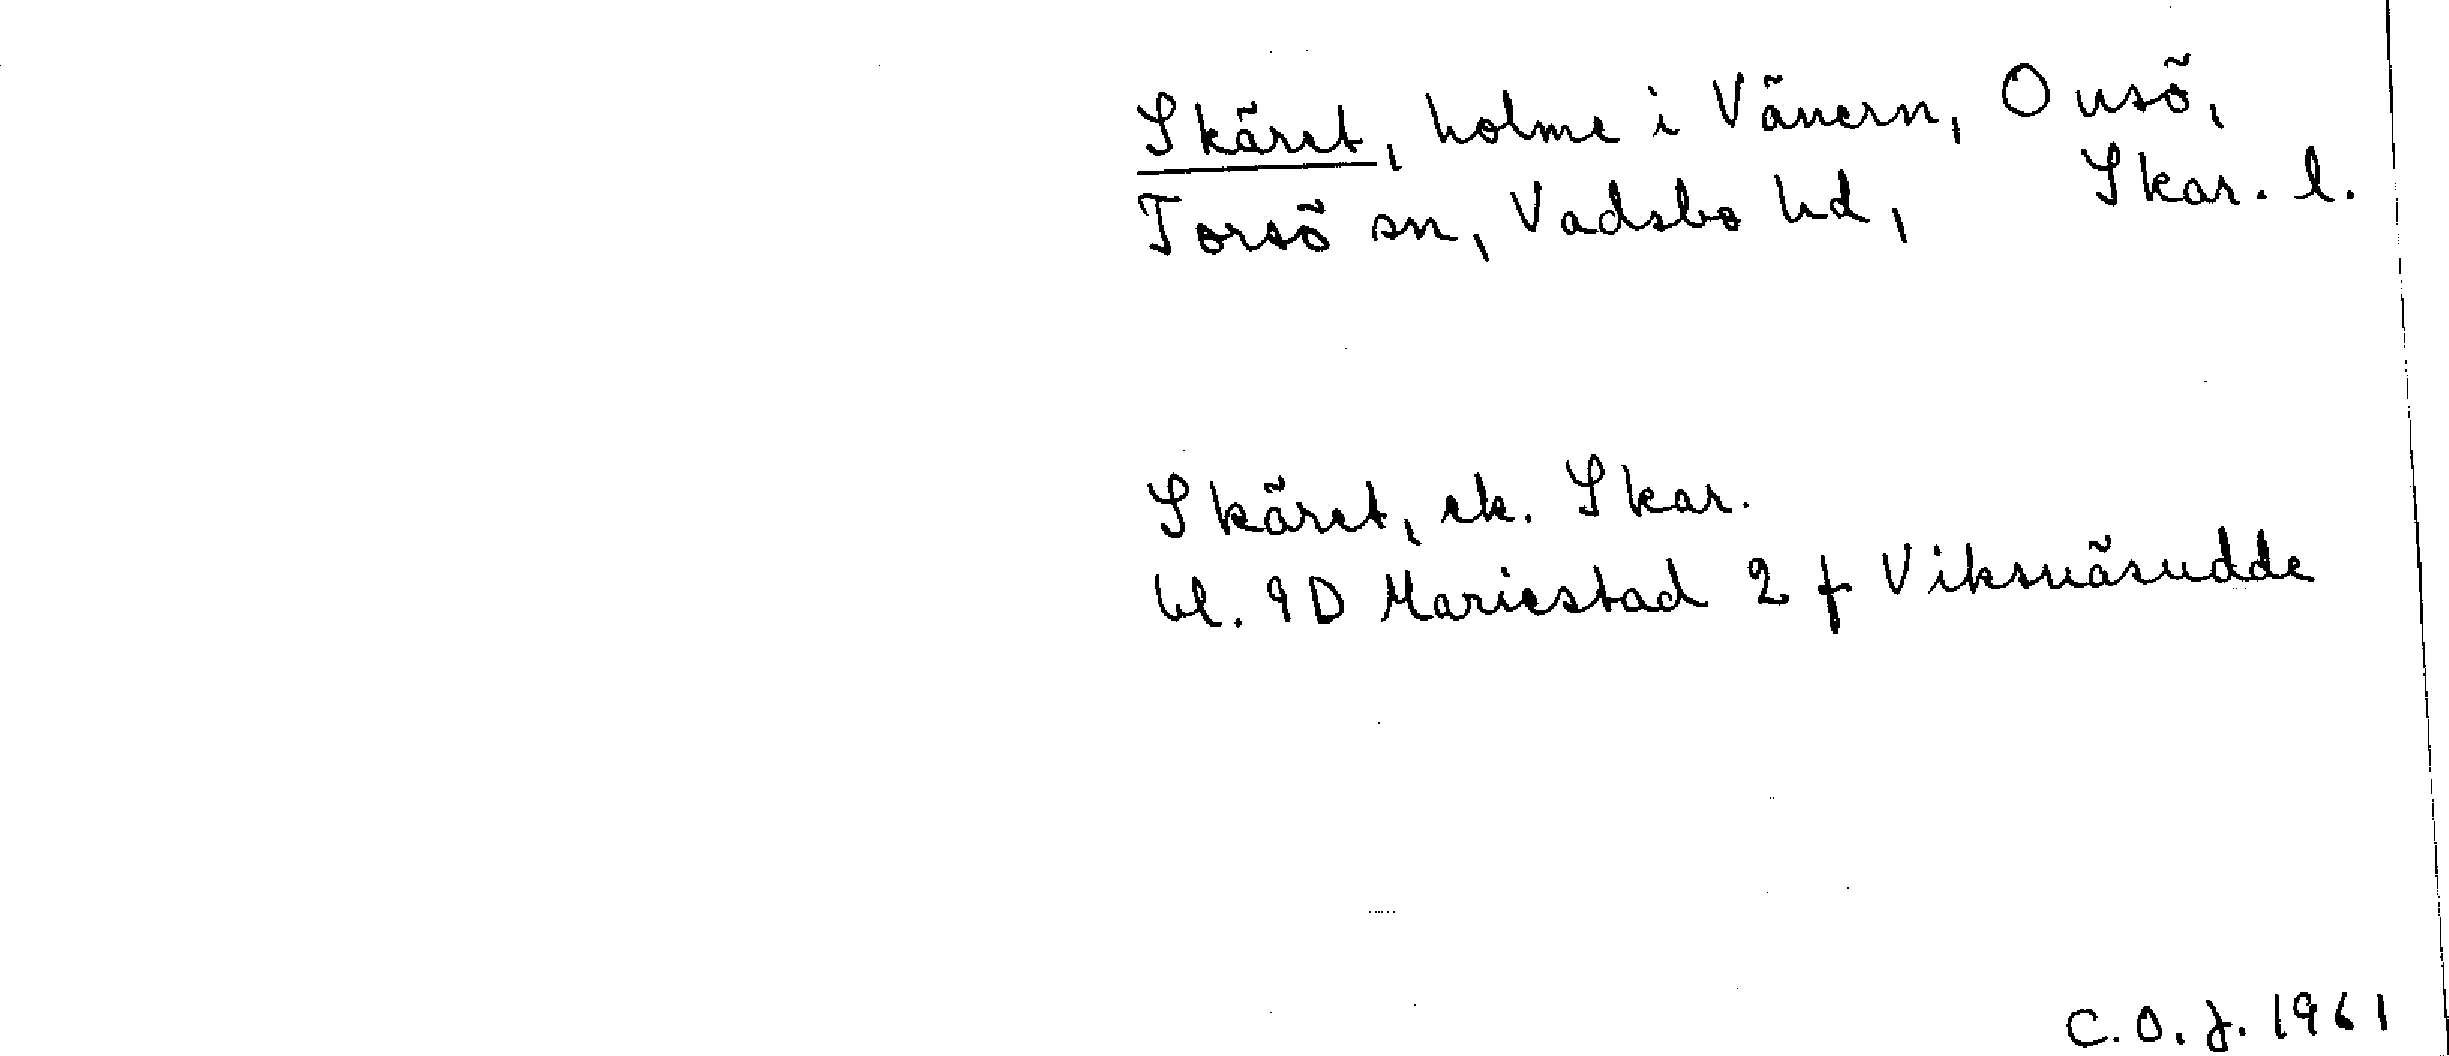 Skäret, holme i Vänern, Onsö,
Torsö sn, Vadsbo hd, Skar. l.
Skäret, ek. Skar.
bl. 9D Mariestad 2 f Viksnäsudde
C.O.J. 1961